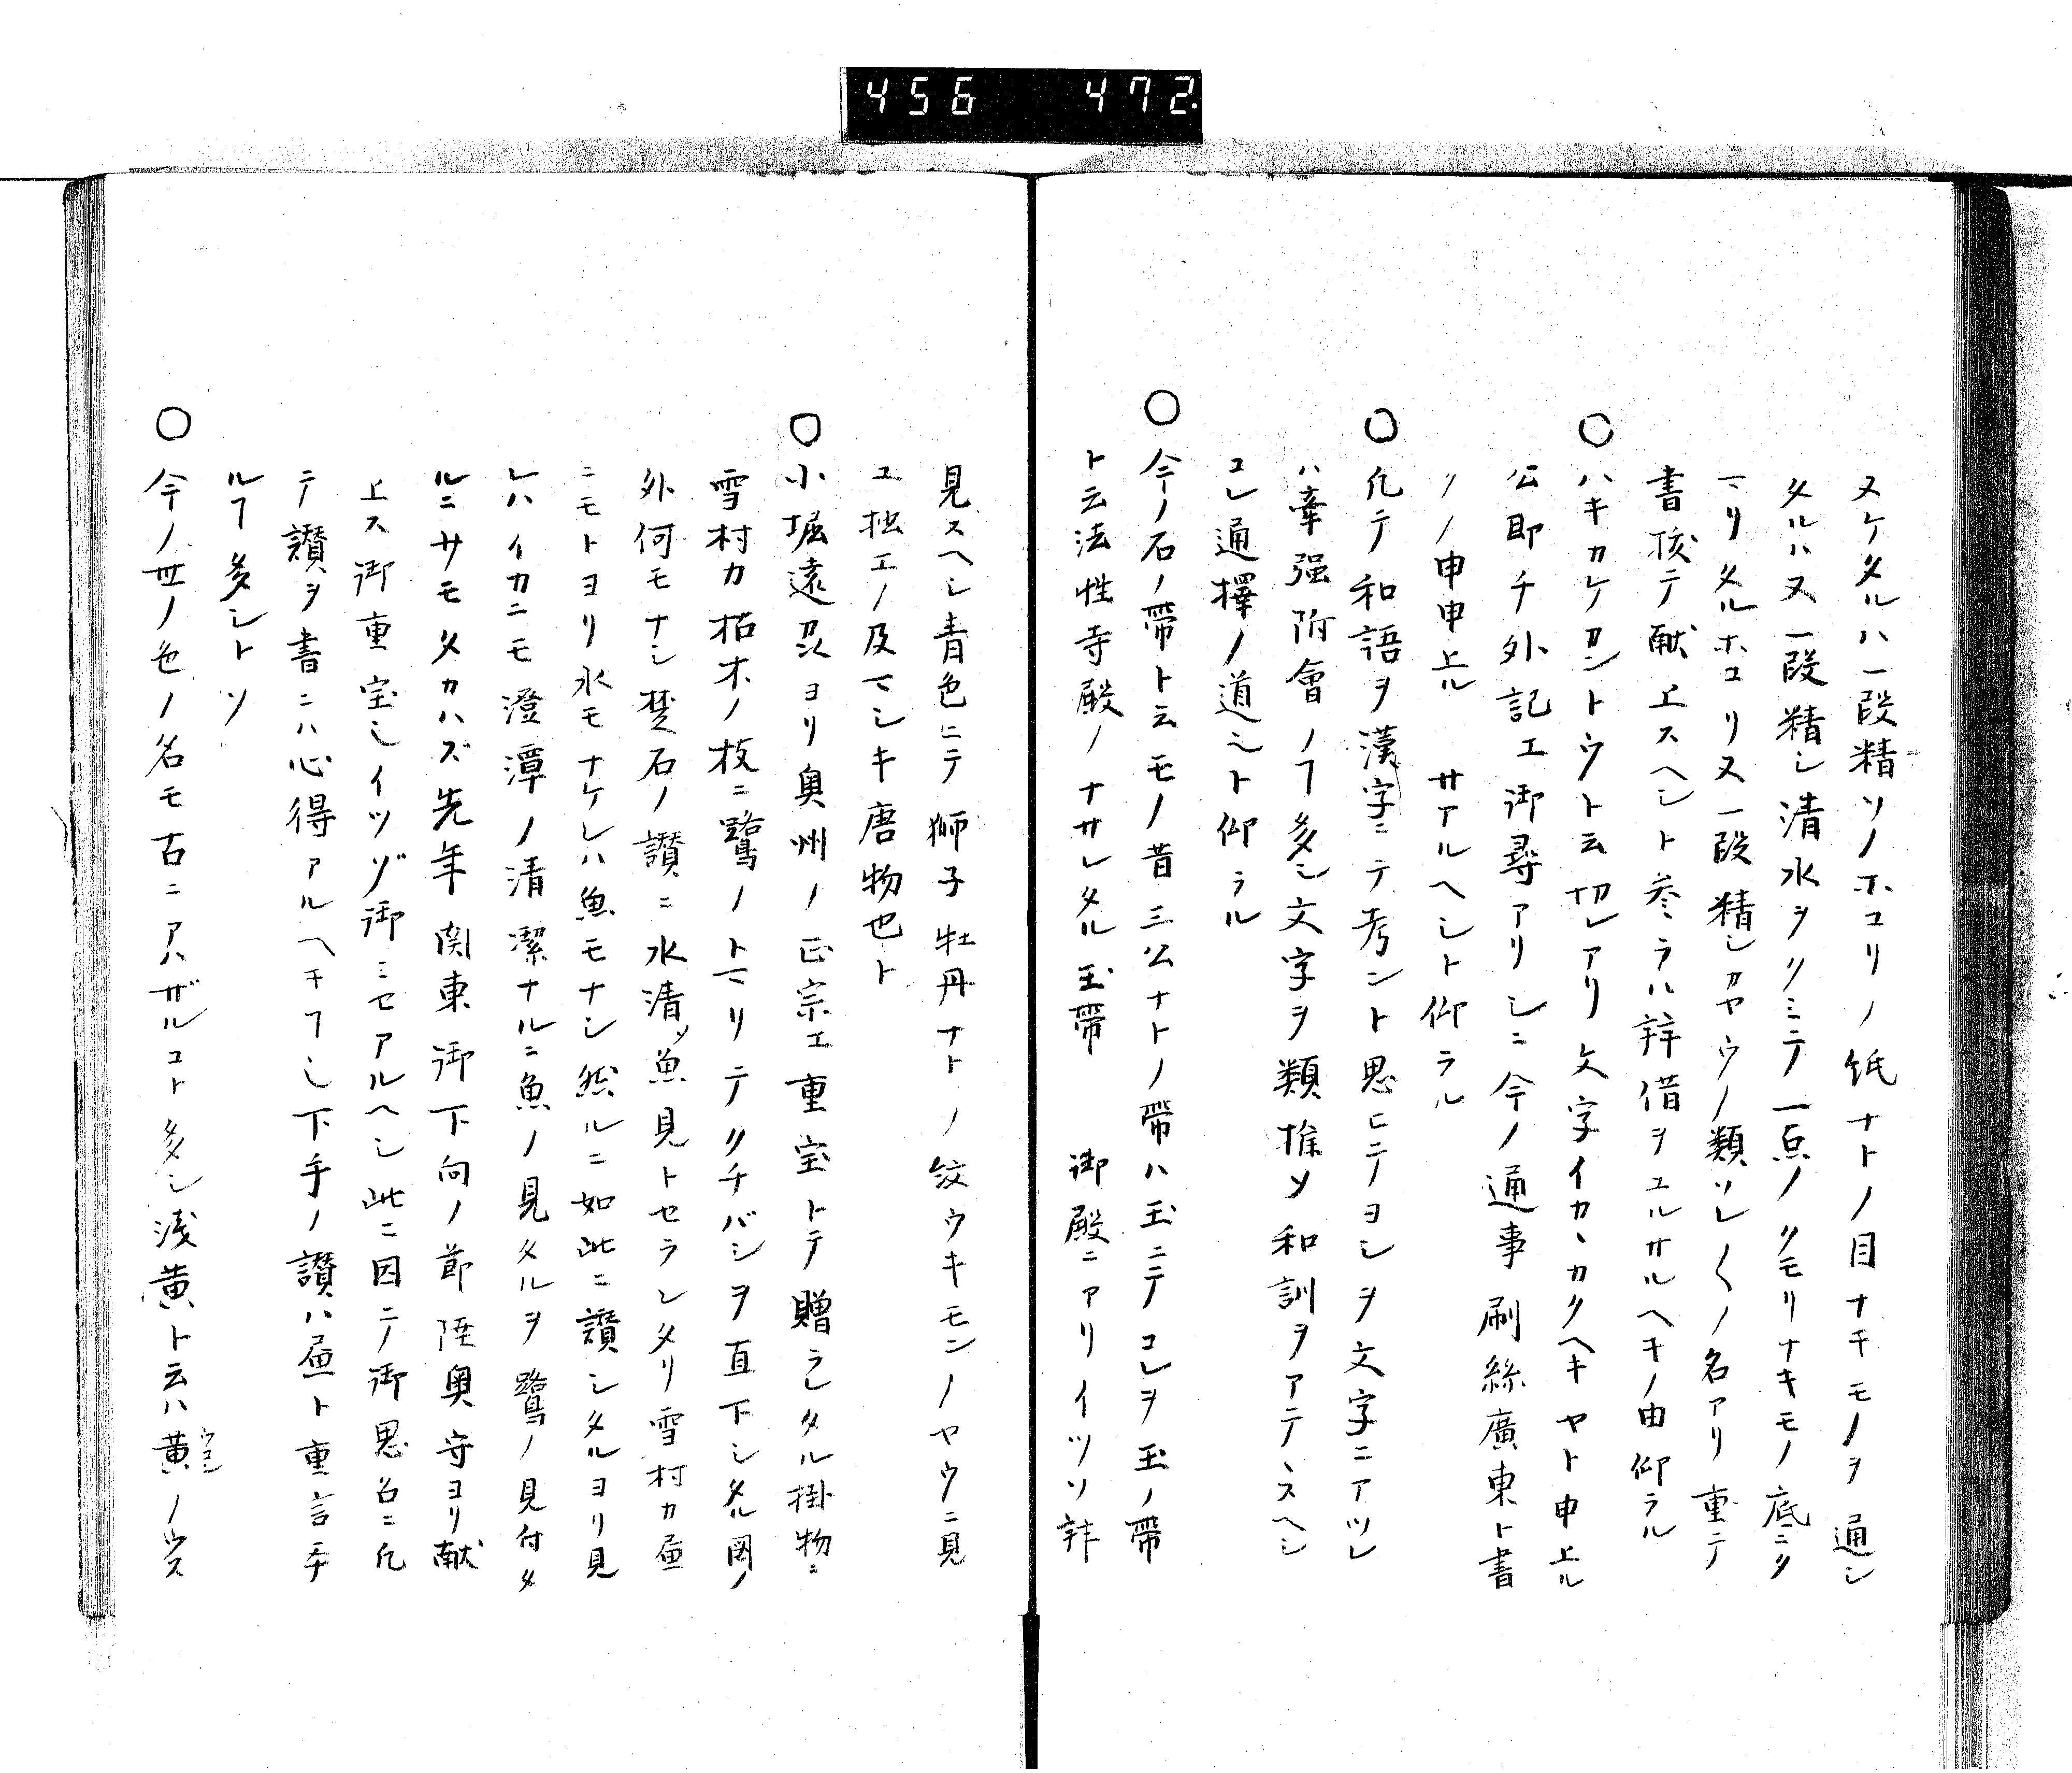 456 472.
ヌケタルハ一段精ソノホコリノ紙ナトノ目ナキモノヲ通シ
タルハ又一段精シ清水ヲクミテ一点ノクモリナキモノ底ニタ
マリタルホコリ又一段精シカヤウノ類ソレ〱ノ名アリ重テ
書抜テ献上スヘシト参ラハ辞借ヲユルサルヘキノ由仰ラル
〇ハキカケカントウト云切レアリ文字イカヽカクヘキヤト申上ル
公即チ外記エ御尋アリシニ今ノ通事刷絲廣東ト書
クノ申申上ル サアルヘシト仰ラル
〇凡テ和語ヲ漢字ニテ考ント思ヒテヨシヲ文字ニアツレ
ハ牽强附會ノヿ多シ文字ヲ類推ソ和訓ヲアテヽスヘシ
コレ通擇ノ道シト仰ラル
〇今ノ石ノ帶ト云モノ昔三公ナトノ帶ハ玉ニテコレヲ玉ノ帶
ト云法性寺殿ノナサレタル玉帶 御殿ニアリイツソ拝
見スヘシ青色ニテ獅子牡丹ナトノ紋ウキモンノヤウニ見
ユ拙工ノ及マシキ唐物也ト
〇小堀遠州ヨリ奥州ノ正宗エ重宝トテ贈ラレタル掛物ニ
雪村カ枯木ノ枝ニ鷺ノトマリテクチバシヲ直下シタル図ノ
外何モナシ楚石ノ讃ニ水清ソ魚見トセラレタリ雪村カ画
ニモトヨリ水モナケレハ魚モナシ然ルニ如此ニ讃シタルヨリ見
レハイカニモ澄潭ノ清潔ナルニ魚ノ見タルヲ鷺ノ見付タ
ルニサモタカハズ先年関東御下向ノ節陸奥守ヨリ献
上ス御重宝シイツゾ御ミセアルヘシ此ニ因テ御思召ニ凡
テ讃ヲ書ニハ心得アルヘキヿシ下手ノ讃ハ画ト重言手
ルヿ多シトソ
〇今ノ世ノ色ノ名モ古ニアハザルコト多シ浅黄ト云ハ黄ノウス